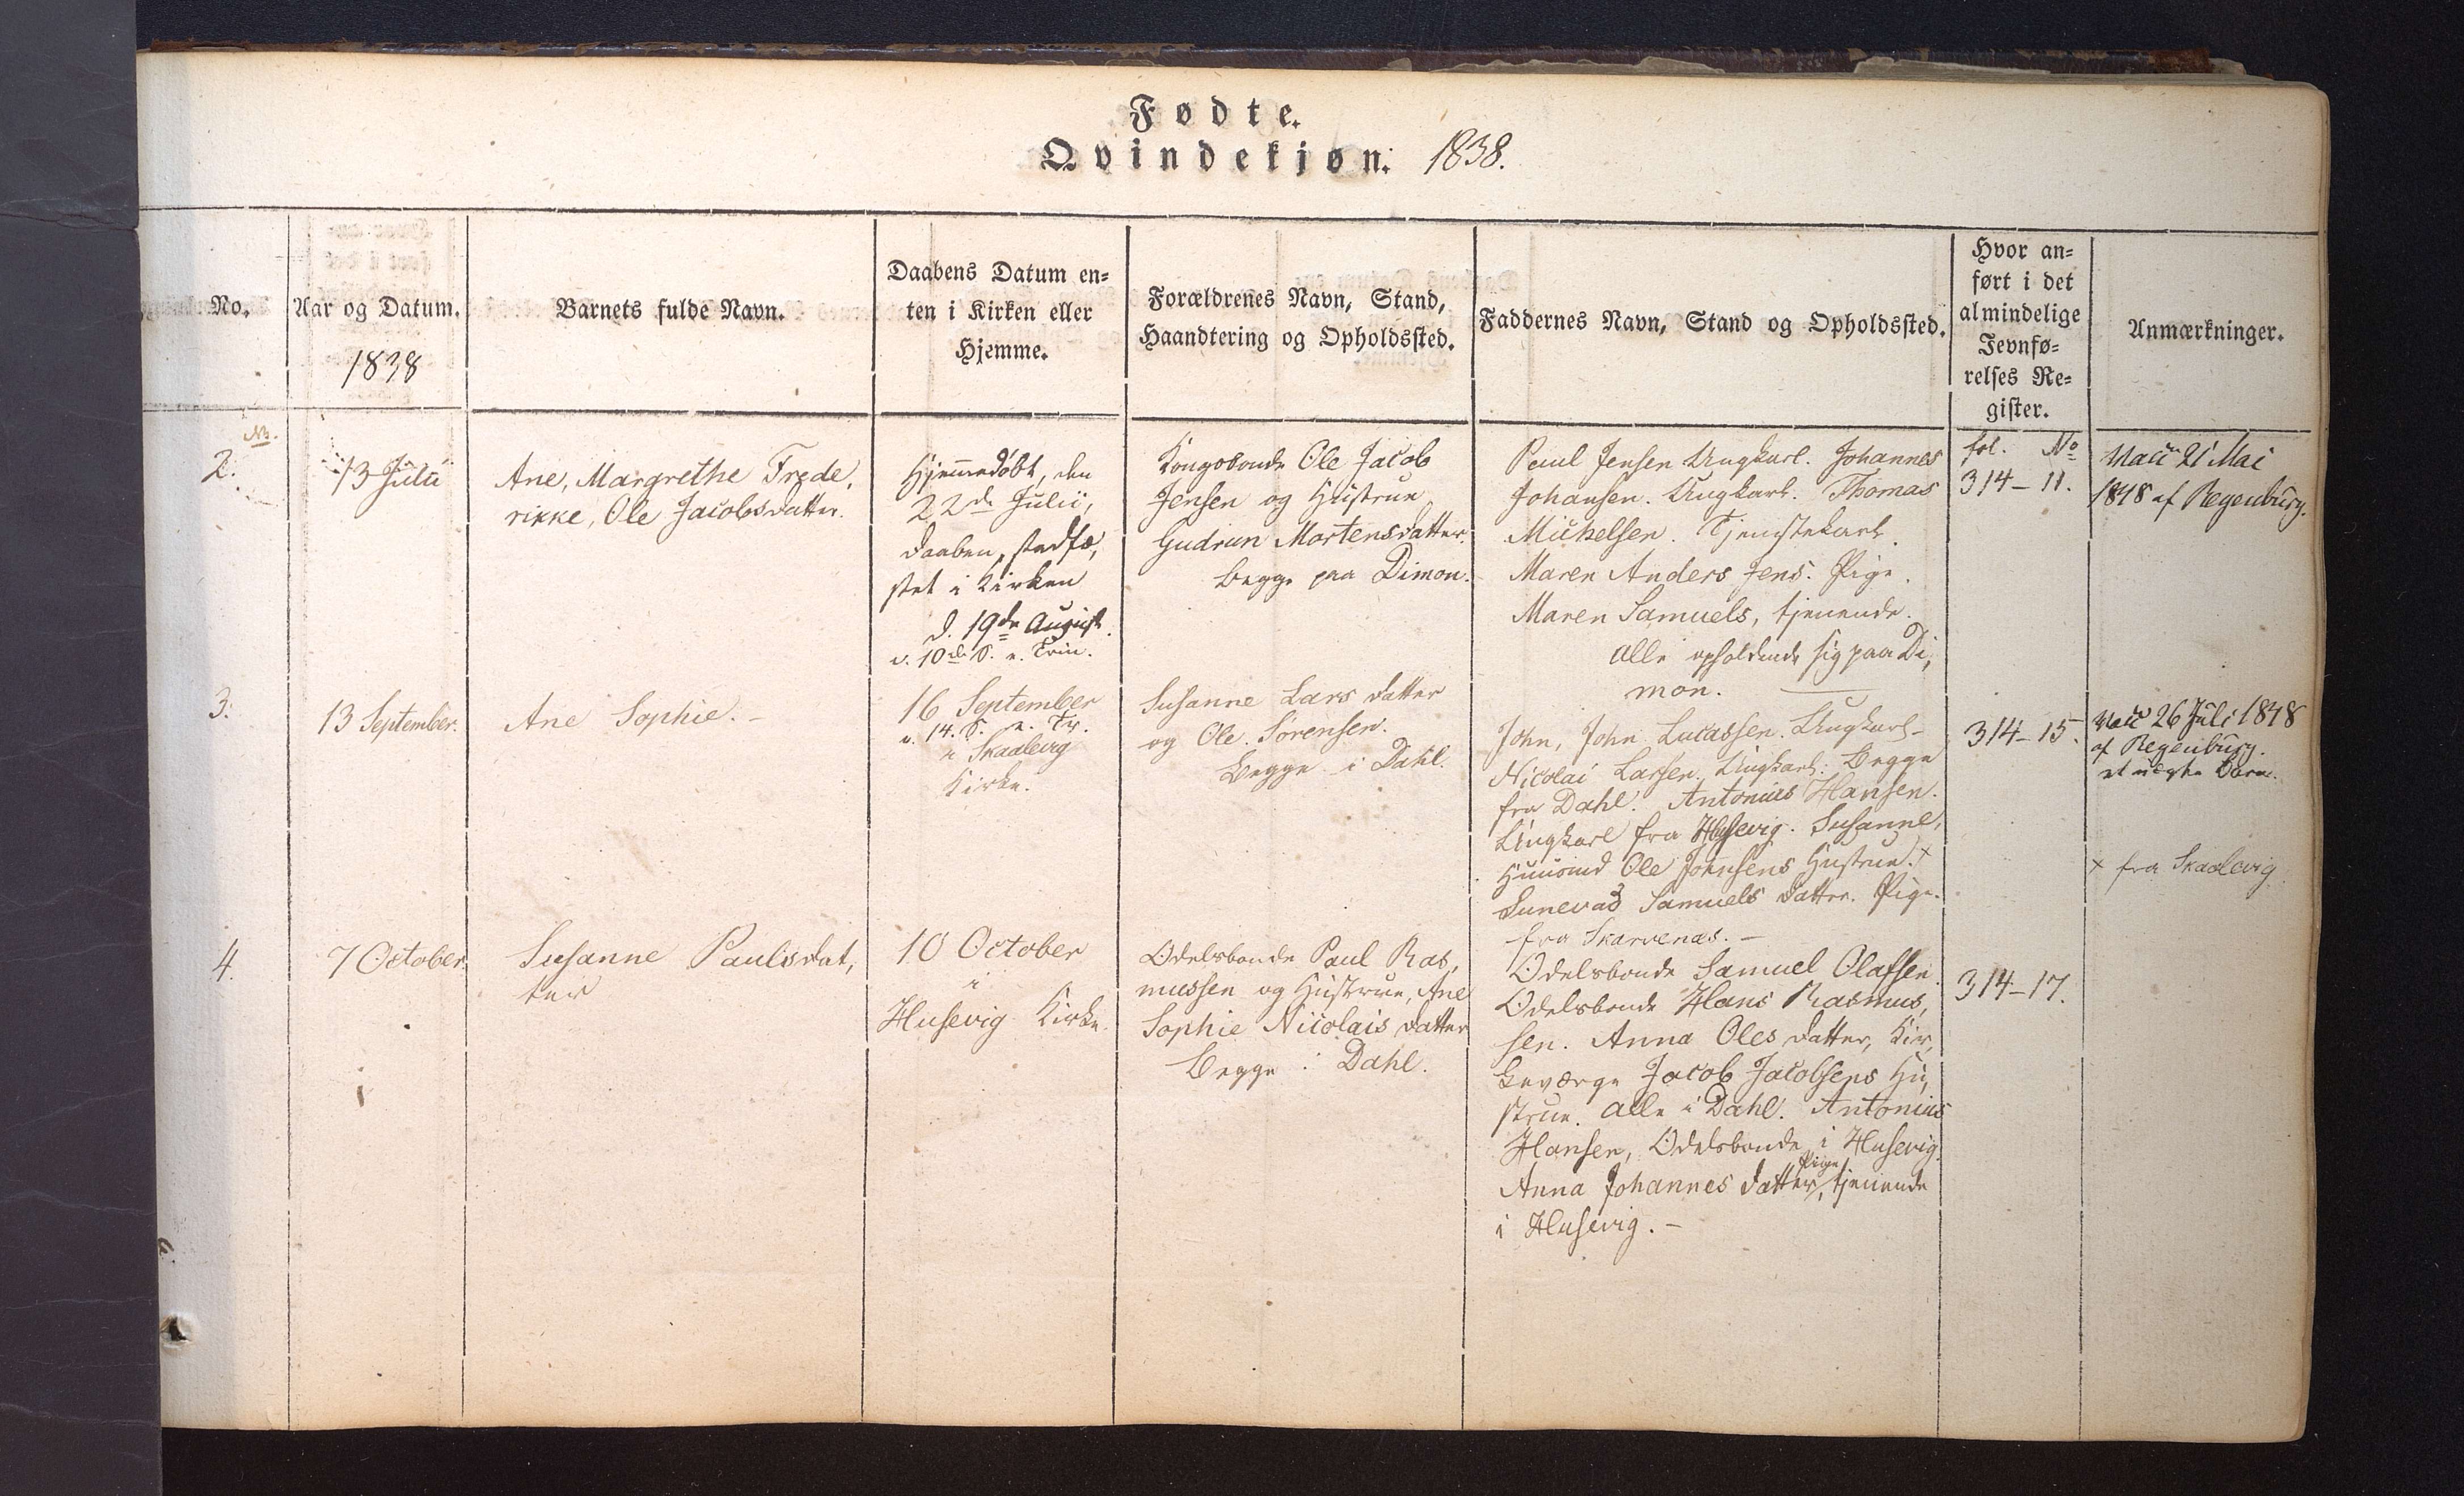 Fødte.
Qvindekjøn. 1838.
No.
Aar og Datum.
1838
Barnets fulde Navn.
Daabens Datum en=
ten i Kirken eller
Hjemme.
Forældrenes Navn, Stand,
Haandtering og Opholdssted.
Faddernes Navn, Stand og Opholdssted.
Hvor an=
ført i det
almindelige
Jevnfø=
relses Re=
gister.
Anmærkninger.
2.
13 Julii
Ane, Margrethe Frede,
rikke, Ole Jacobsdatter.
Hjemmedøbt, den
22de Julii,
Daaben, stadfæ,
stet i Kirken
d. 19de August.
d. 10de S. e. Trin.
Kongsbonde Ole Jacob
Jensen og Hustrue
Gudrun Mortensdatter.
begge paa Dimon.
Paul Jensen Ungkarl. Johannes
Johansen. Ungkarl. Thomas
Michelsen. Tjenstekarl.
Maren Anders Jens. Pige.
Maren Samuels, tjenende.
alle opholdende sig paa Di,
mon.
fol. No
314 - 11.
Vacc 21 Mai
1848 af Regenburg.
3.
13 September.
Ane Sophie. -
16 September
d. 14. S. e. Tr.
i Skaalevig
Kirke.
Susanne Lars datter
og Ole Sørensen.
Begge i Dahl.
John, John Lucassen. Ungkarl -
Nicolai Larsen. Ungkarl. Begge
fra Dahl. Antonius Hansen.
Ungkarl fra Husevig. Susanne,
Huusmd Ole Johnsens Hustrue. x
Sunevad Samuels datter. Pige.
fra Skarvenæs. -
314 - 15.
Vacc 26 Juli 1848
af Regenburg.
et uægte Barn.
x fra Skaalevig
4.
7 October.
Susanne Paulsdat,
ter
10 October
i
Husevig Kirke.
Odelsbonde Paul Ras,
mussen og Hustrue, Ane
Sophie Nicolais datter
begge i Dahl.
Odelsbonde Samuel Olafsen
Odelsbonde Hans Rasmus,
sen. Anna Oles datter, Kir,
keværge Jacob Jacobsens Hu,
strue. alle i Dahl. Antonius
Hansen, Odelsbonde i Husevig.
Anna Johannes datter, Pige, tjenende
i Husevig. -
314 - 17.